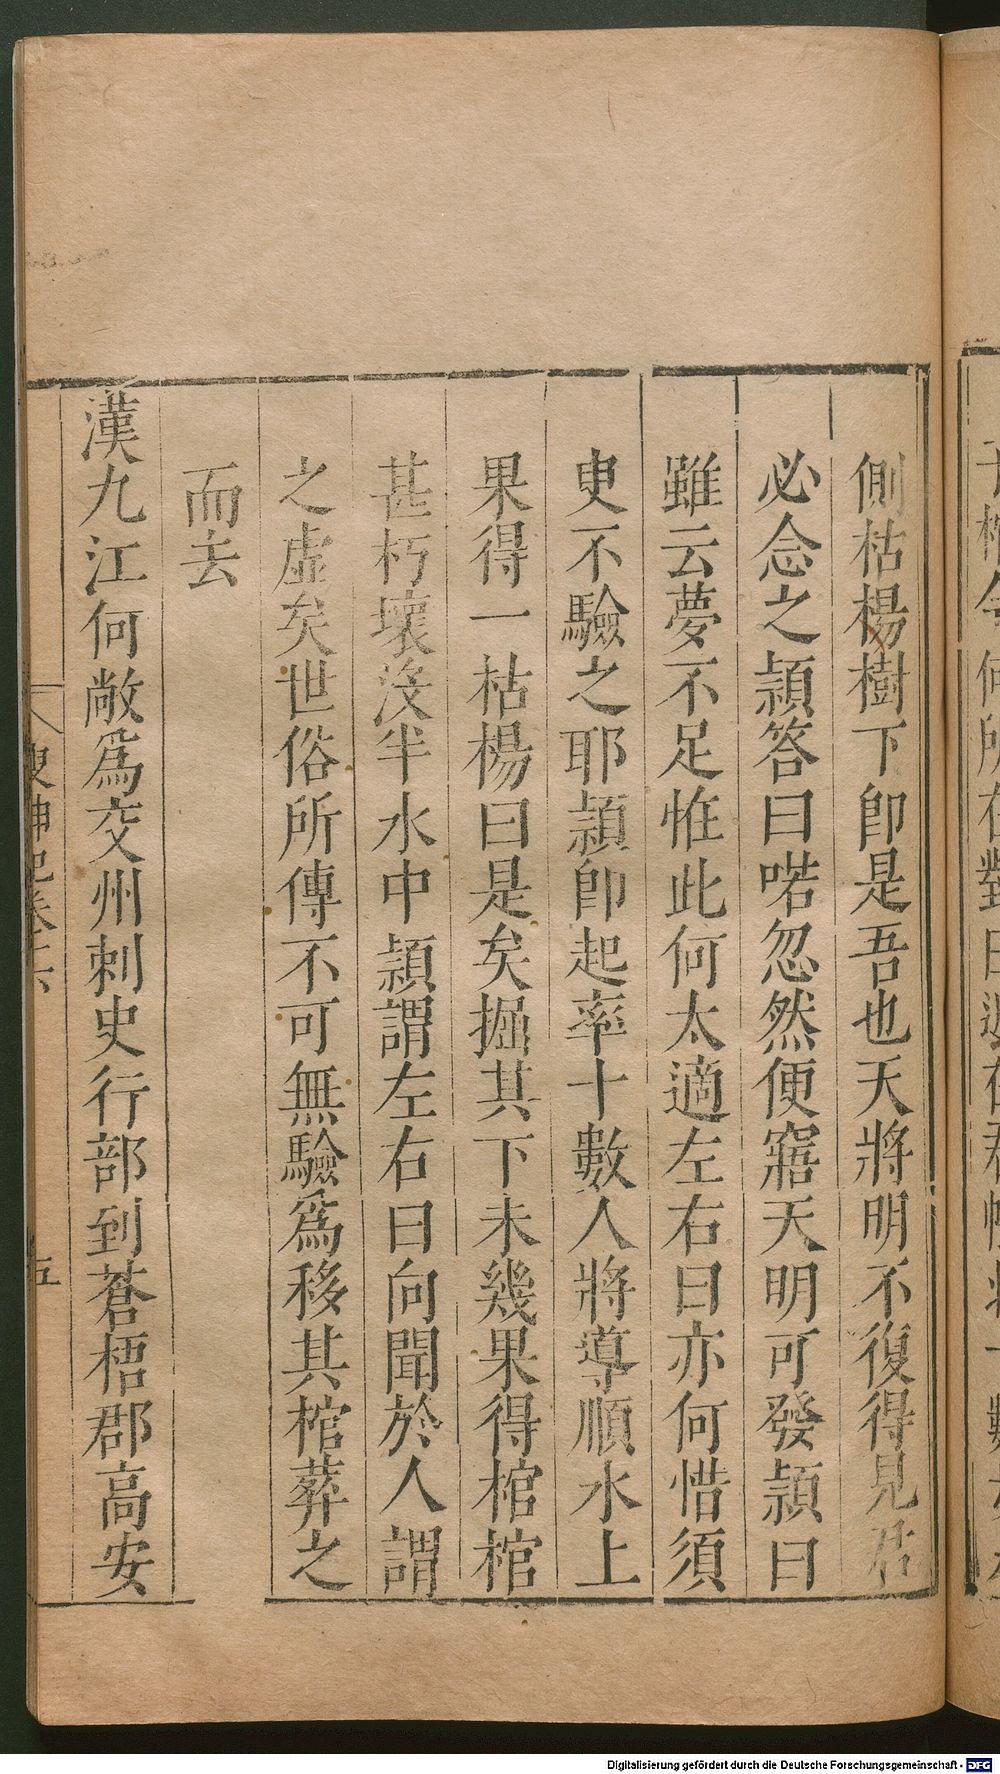 側枯楊樹下即是吾也天將明不復得見君
必念之頴答曰喏忽然便寤天明可發頴曰
雖云夢不足恠此何太適左右曰亦何惜須
臾不驗之耶頴即起率十數人將導順水上
果得一枯楊曰是矣掘其下未幾果得棺棺
甚朽壞沒半水中頴謂左右曰向聞於人謂
之虛矣世俗所傳不可無驗爲移其棺葬之
而去
漢九江何敞爲交州刺史行部到蒼梧郡高安
搜神記卷十六
五
Digitalisierung gefördert durch die Deutsche Forschungsgemeinschaft - DFG